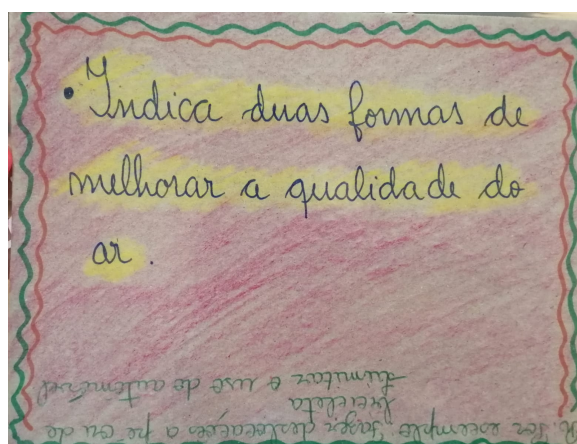 • Indica duas formas de
melhorar a qualidade do
ar.
R: Por exemplo, fazer deslocações a pé ou de
bicicleta
Limitar o uso do automóvel